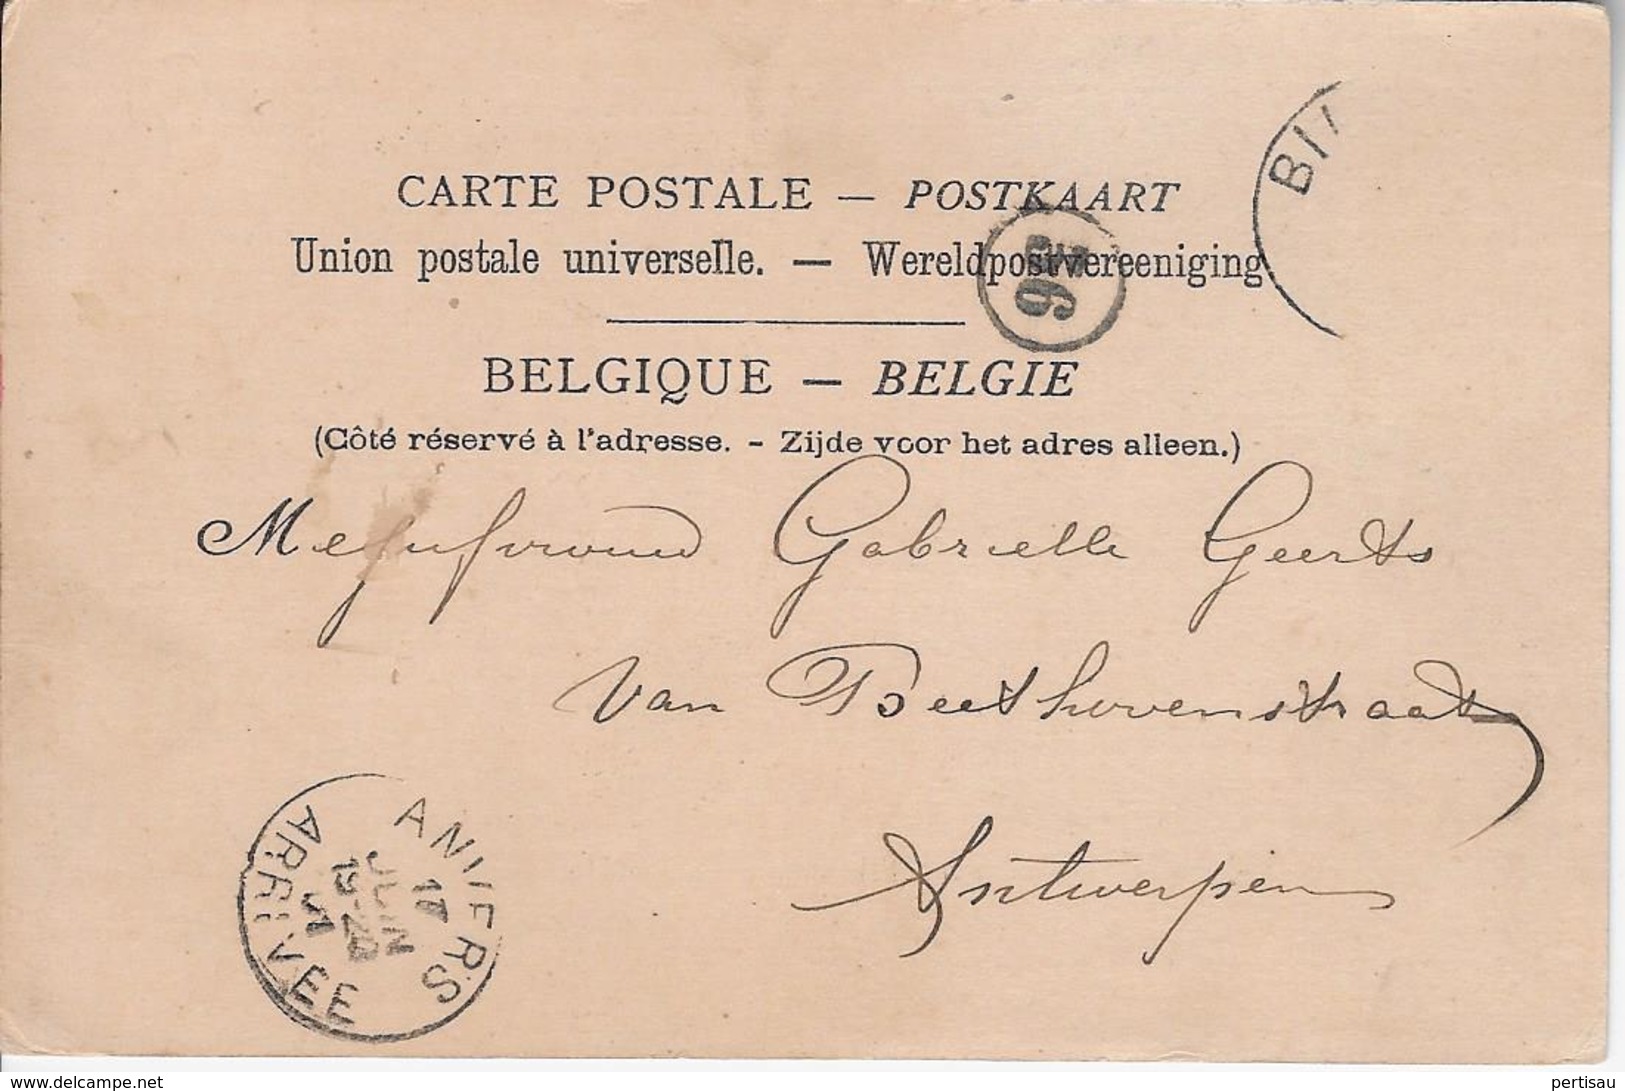 CARTE POSTALE — POSTKAART
Union postale universelle. — Wereldpostvereeniging
BELGIQUE — BELGIE
(Côté réservé à l'adresse. - Zijde voor het adres alleen.)
Mejufvrouw Gabrielle Geerts
van Beethovenstraat
Antwerpen
ANVERS
17
JUIN
19-20
ARRIVEE
www.delcampe.net
pertisau